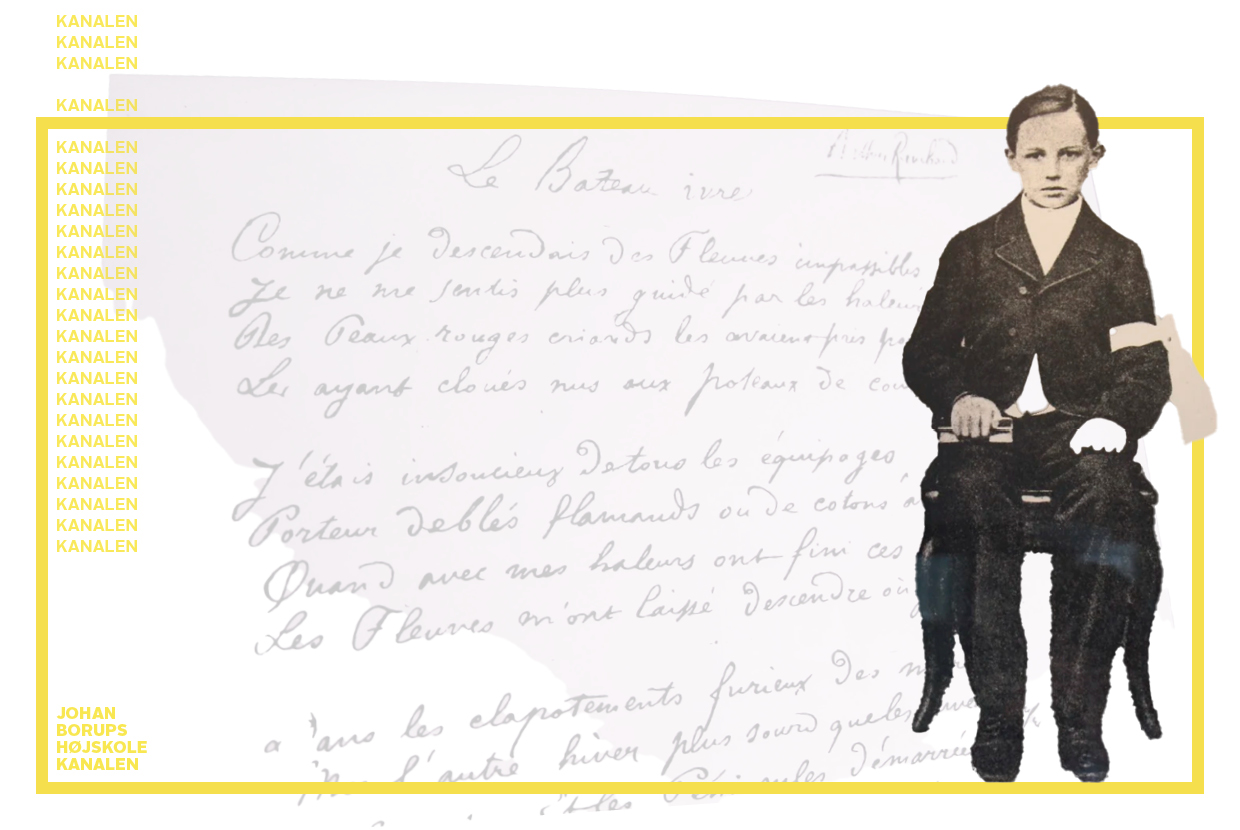 KANALEN
KANALEN
KANALEN
KANALEN
KANALEN
KANALEN
KANALEN
KANALEN
KANALEN
KANALEN
KANALEN
KANALEN
KANALEN
KANALEN
KANALEN
KANALEN
KANALEN
KANALEN
KANALEN
KANALEN
KANALEN
KANALEN
KANALEN
KANALEN
Arthur Rimbaud
Le Bateau ivre
Comme je descendais des Fleuves impassibles
Je ne me sentis plus guidé par les haleurs
Des Peaux rouges criards les avaient pris
Les ayant cloués nus aux poteaux de
J'étais insoucieux de tous les équipages,
Porteur de blés flamands ou de cotons
Quand avec mes haleurs ont fini ces
Les Fleuves m'ont laissé descendre où
les clapotements furieux des
l'autre hiver plus sourd que les
démarrées
JOHAN
BORUPS
HØJSKOLE
KANALEN